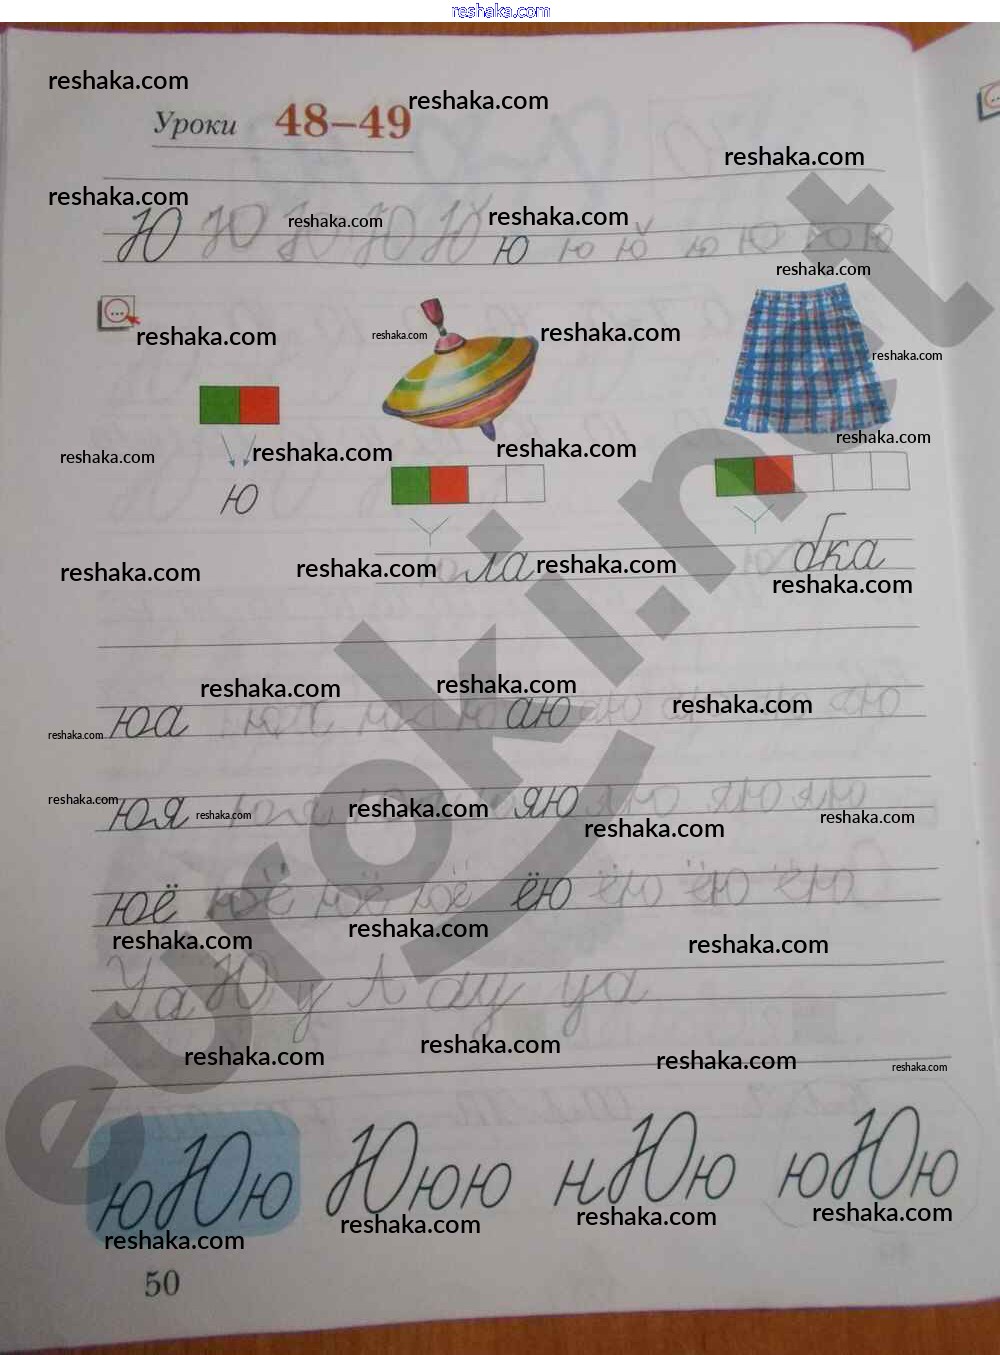 reshaka.com
reshaka.com
reshaka.com
Уроки 48–49
reshaka.com
reshaka.com
Ю Ю Ю Ю Ю ю ю ю ю ю ю ю
reshaka.com reshaka.com
reshaka.com
...
reshaka.com reshaka.com reshaka.com
reshaka.com
reshaka.com reshaka.com reshaka.com reshaka.com
ю
юла бка
reshaka.com reshaka.com reshaka.com
reshaka.com
reshaka.com reshaka.com
reshaka.com
юа аю аю
reshaka.com
reshaka.com
юя яю яю яю яю
reshaka.com reshaka.com reshaka.com
reshaka.com
юё юё юё юё ёю ёю ёю ёю
reshaka.com reshaka.com reshaka.com
reshaka.com reshaka.com reshaka.com reshaka.com
юЮю Ююю нЮю юЮю
reshaka.com reshaka.com reshaka.com reshaka.com
50
euroki.net